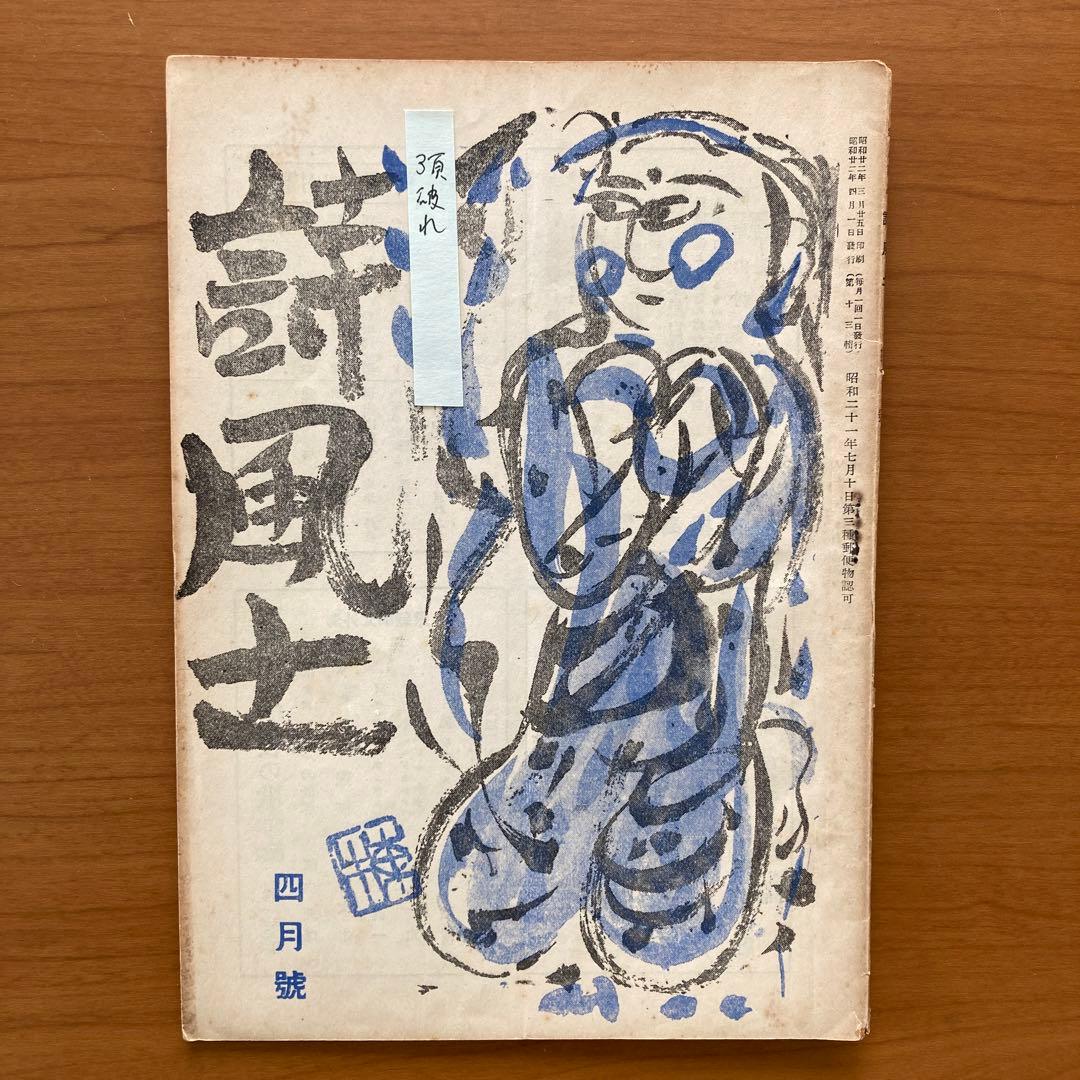 昭和廿二年三月廿五日印刷（毎月一回一日發行）
昭和廿二年四月一日發行（第十三輯）
昭和二十一年七月十日第三種郵便物認可
頁破れ
詩風土
四月號